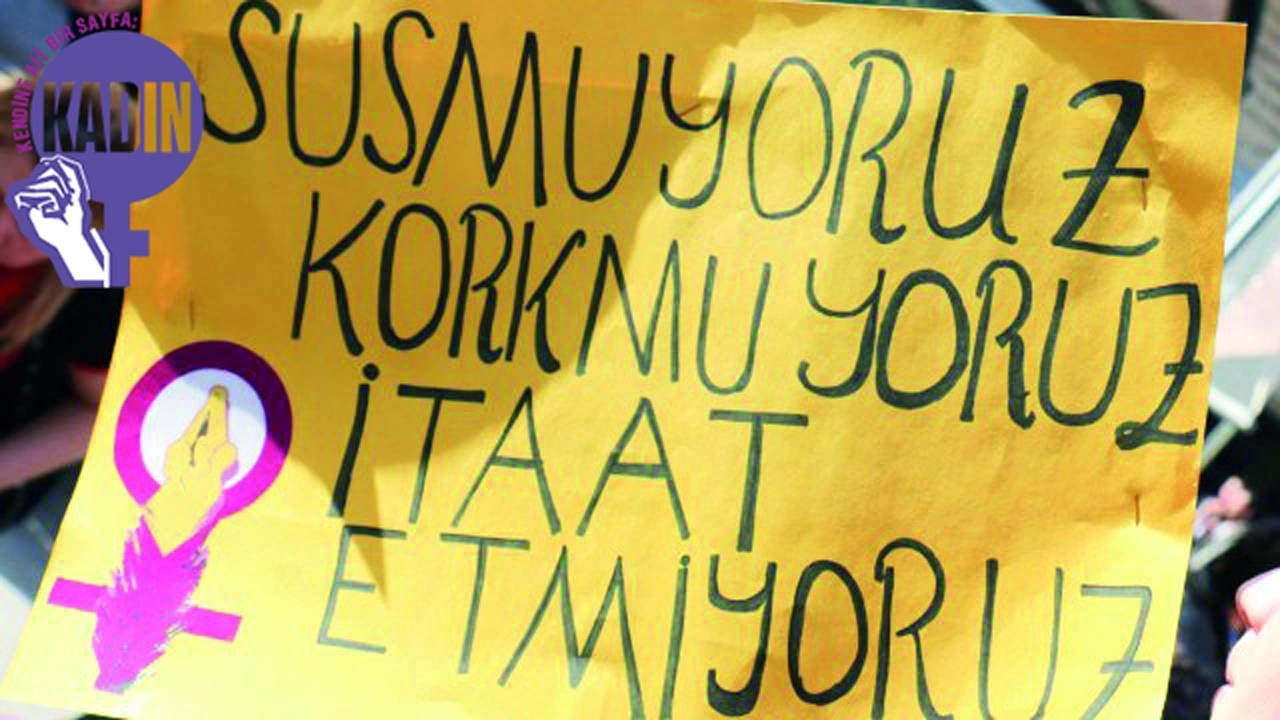 KENDİNE AİT BİR SAYFA:
KADIN
SUSMUYORUZ
KORKMUYORUZ
İTAAT
ETMİYORUZ